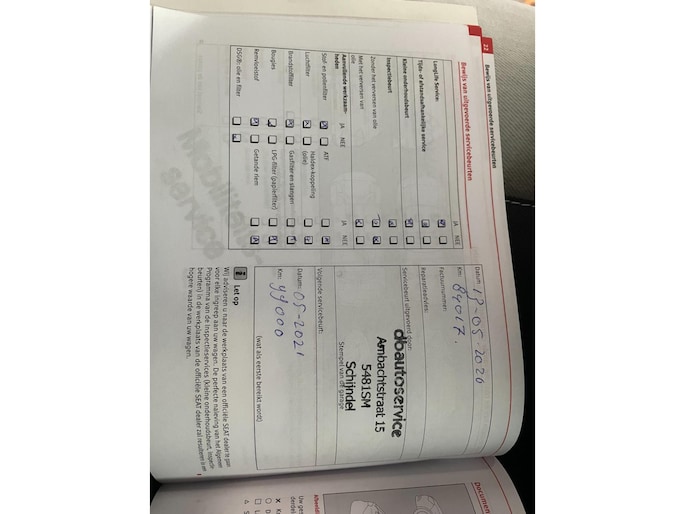 22
Bewijs van uitgevoerde servicebeurten
Bewijs van uitgevoerde servicebeurten
JA NEE
LongLife Service:
Tijds- of afstandsafhankelijke service
Kleine onderhoudsbeurt
Inspectiebeurt
Zonder het verversen van olie
Met het verversen van olie
Aanvullende werkzaamheden
JA NEE
JA NEE
Stof- en pollenfilter
ATF
Luchtfilter
Haldex-koppeling (olie)
Brandstoffilter
Gasfilter en slangen
Bougies
LPG-filter (papierfilter)
Remvloeistof
Getande riem
DSG®: olie en filter
Datum: -05-2020
Km: 89017.
Factuurnummer:
Reparatieadvies:
Servicebeurt uitgevoerd door:
dbautoservice
Ambachtstraat 15
5481SM
Schijndel
Stempel van de garage
Volgende servicebeurt:
Datum: 05-2021
Km: 99000
(wat als eerste bereikt wordt)
Let op
Wij adviseren u naar de werkplaats van een officiële SEAT dealer te gaan
voor elke ingreep aan uw wagen. De perfecte naleving van het Algemeen
Programma van de Inspectieservices (kleine onderhoudsbeurt, inspectie-
beurten) in de werkplaats van de officiële SEAT dealer zal resulteren in een
hogere waarde van uw wagen.
Documen